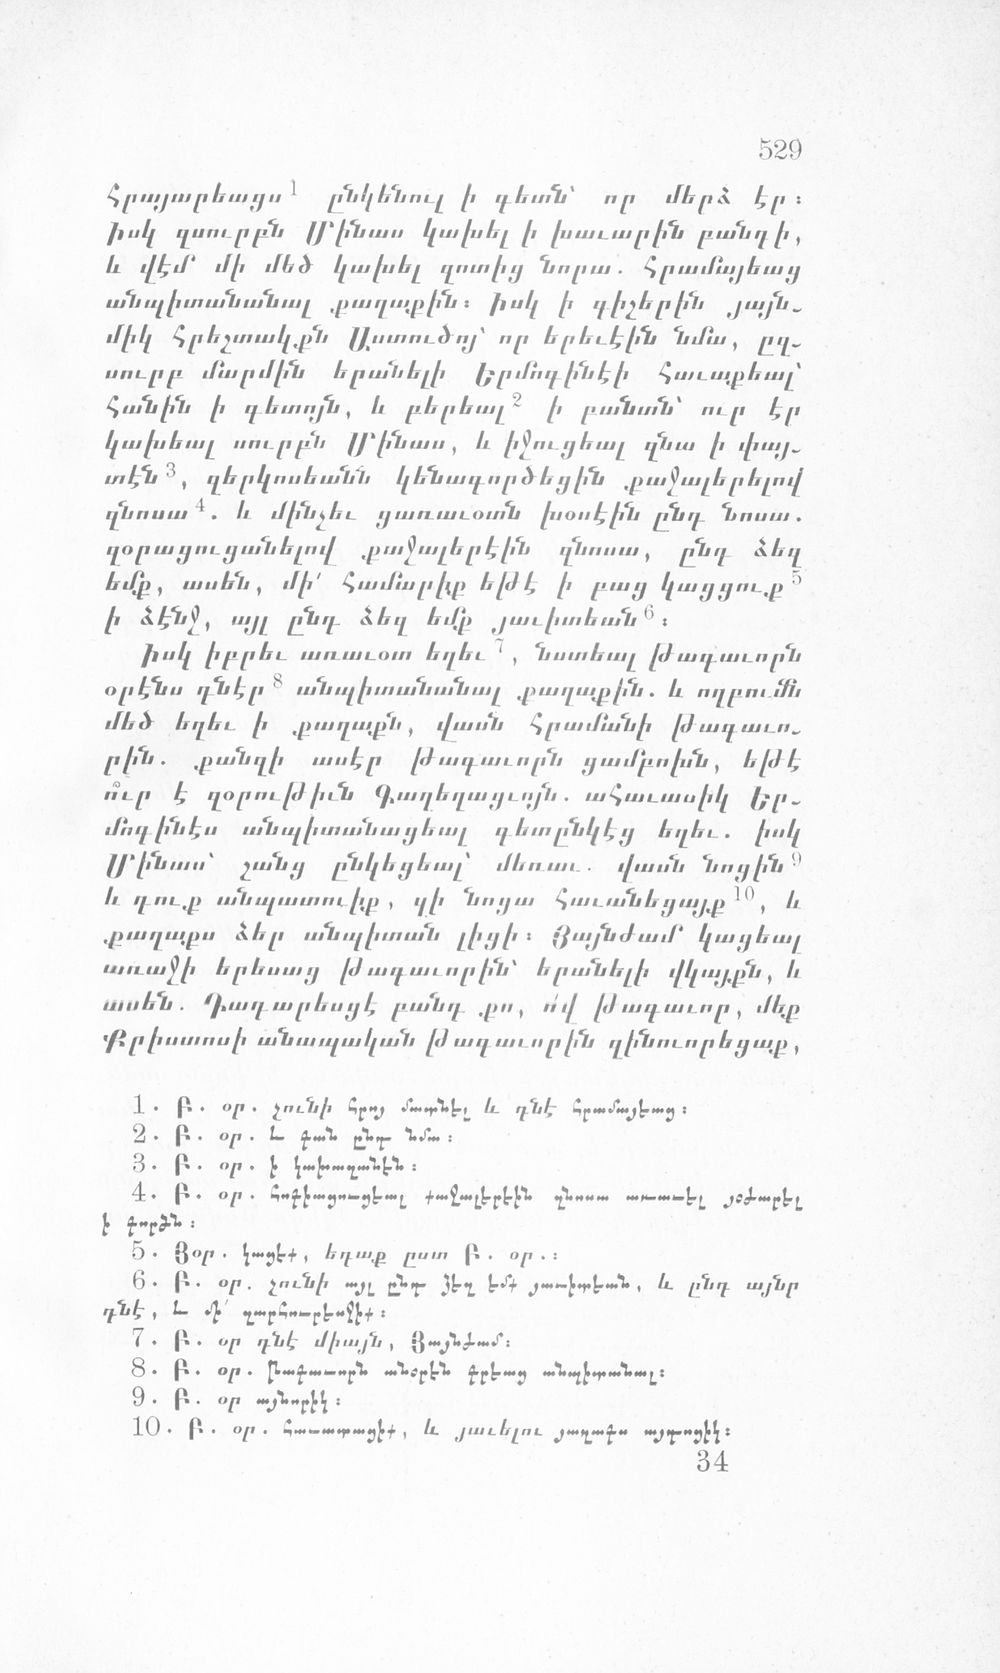 529
հրայարեացս1 ընկենուլ ի գետն՝ որ մերձ էր։
Իսկ զսուրբն Մինաս կախել ի խաւարին բանդի,
և վէմ մի մեծ կախել զոտից նորա. հրամայեաց
անպիտանանալ քաղաքին։ Իսկ ի գիշերին յայն-
միկ հրեշտակքն Աստուծոյ՝ որ երեւէին նմա, ըզ-
սուրբ մարմին երանելի Երմոգինէի հաւաքեալ՝
հանին ի գետոյն, և բերեալ2 ի բանտն՝ ուր էր
կախեալ սուրբն Մինաս, և իջուցեալ զնա ի փայ-
տէն3, զերկոսեանն կենագործեցին քաջալերելով
զնոսա4. և մինչեւ ցառաւօտն խօսէին ընդ նոսա.
զօրացուցանելով քաջալերէին զնոսա, ընդ ձեզ
եմք, ասեն, մի՛ համարիք եթէ ի բաց կացցուք5
ի ձէնջ, այլ ընդ ձեզ եմք յաւիտեան6։
Իսկ իբրեւ առաւօտ եղեւ7, նստեալ թագաւորն
օրէնս դնէր8 անպիտանանալ քաղաքին. և ողբումն
մեծ եղեւ ի քաղաքն, վասն հրամանի թագաւո-
րին. քանզի ասէր թագաւորն ցամբոխն, եթէ
ո՞ւր է զօրութիւն Գաղեղացւոյն. ահաւասիկ Եր-
մոգինէս անպիտանացեալ գետընկէց եղեւ. իսկ
Մինաս՝ շանց ընկեցեալ՝ մեռաւ. վասն նոցին9
և դուք անպատուիք, զի նոցա հաւանեցայք10, և
քաղաքս ձեր անպիտան լիցի։ Յայնժամ կացեալ
առաջի երեսաց թագաւորին՝ երանելի վկայքն, և
ասեն. Դադարեսցէ բանդ քո, ո՛վ թագաւոր, մեք
Քրիստոսի անապական թագաւորին զինուորեցաք,
1. Բ. օր. չունի հրոյ մատնել և դնէ հրամայեաց։
2. Բ. օր. ԵՒ գան ընդ նմա։
3. Բ. օր. ի կախազանէն։
4. Բ. օր. հոգիացուցեալ քաջալերէին զնոսա առաւել յօժարել
ի գործն։
5. Յօր. կացեք, եդաք ըստ Բ. օր.։
6. Բ. օր. չունի այլ ընդ ձեզ եմք յաւիտեան, և ընդ այնր
դնէ, ԵՒ մի՛ զարհուրեսջիք։
7. Բ. օր դնէ միայն, Յայնժամ։
8. Բ. օր. Թագաւորն անօրէն գրեաց անպիտանալ։
9. Բ. օր այնորիկ։
10. Բ. օր. հաւատացիք, և յաւելու յաղագս այդոցիկ։
34